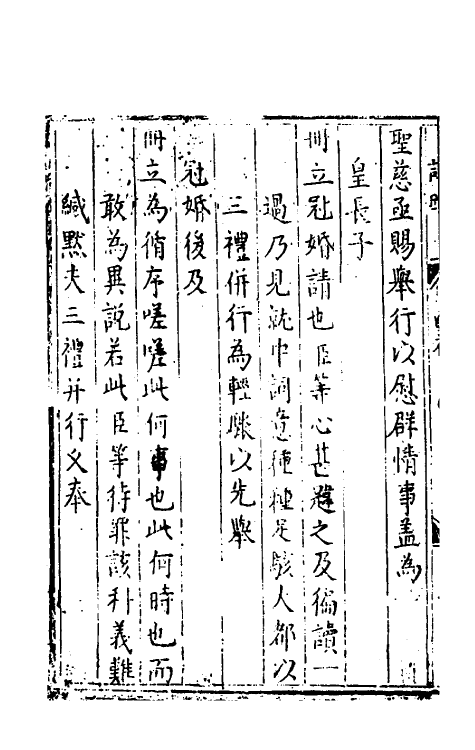 聖慈亟賜舉行以慰群情事盖為
皇長子
冊立冠婚請也臣等心甚韙之及徧讀一
過乃見就中詞意種種足駭人都以
三禮併行為輕褻以先舉
冠婚後及
冊立為循序嗟嗟此何事也此何時也而
敢為異說若此臣等待罪該科義難
緘默夫三禮并行乂奉